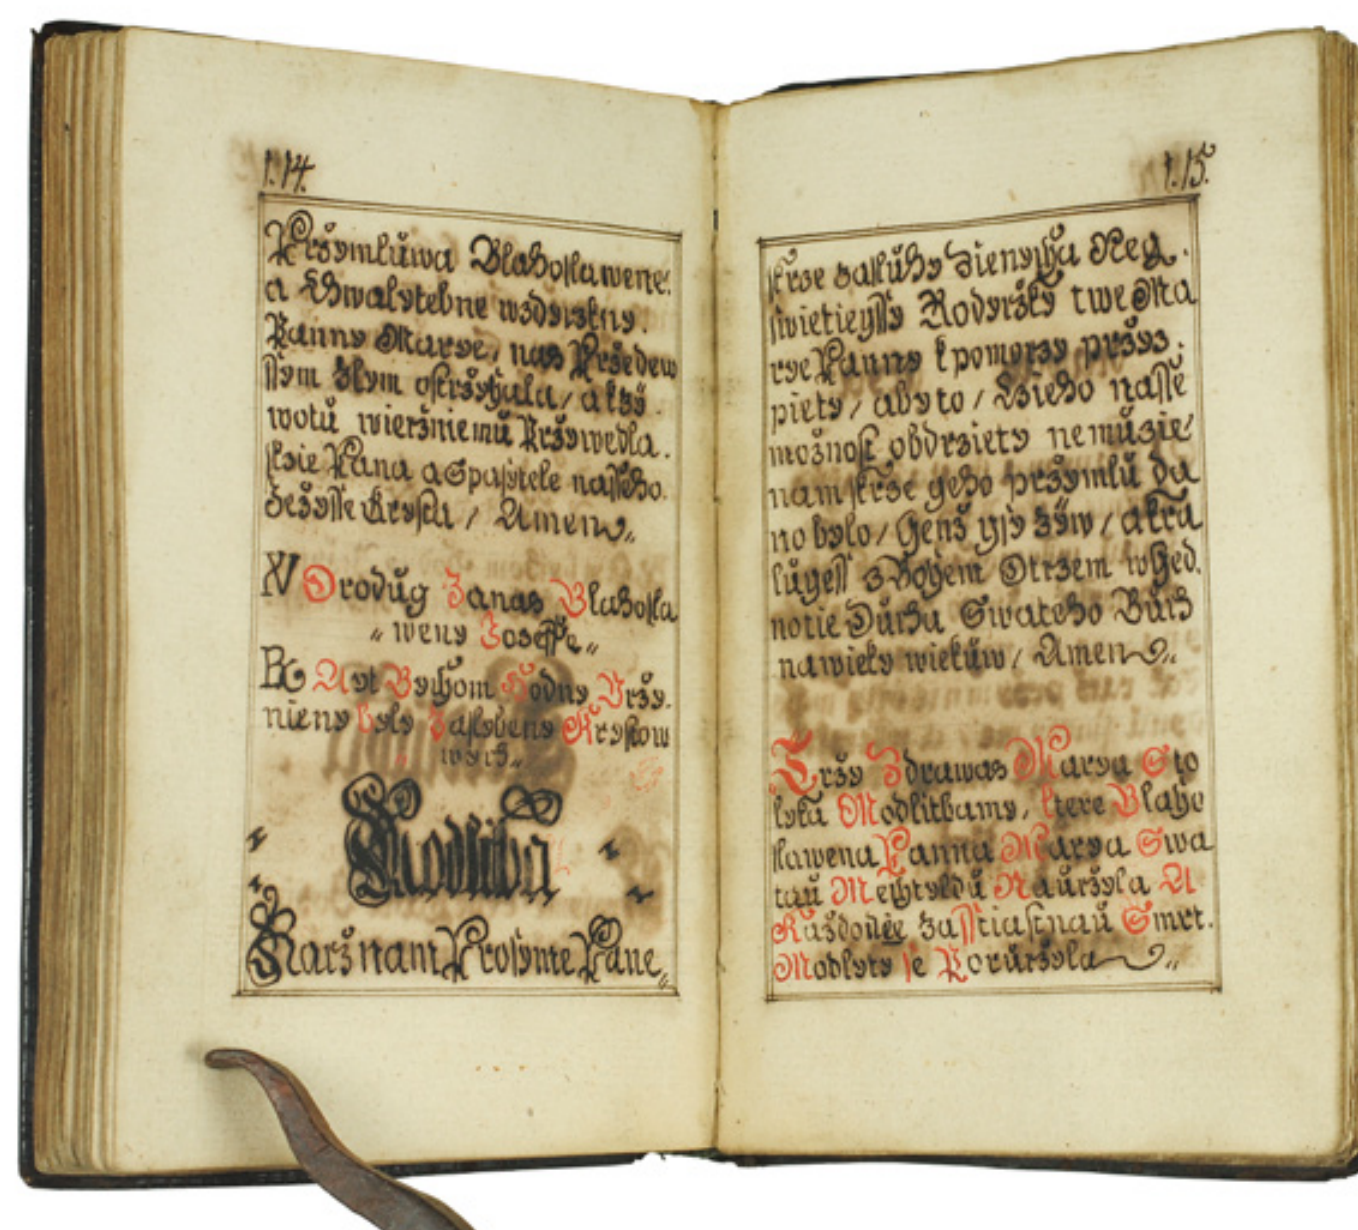 1.14.
Przymluwa Blahoslawene
a Chwalytebne wzdyczkny.
Panny Marye, nas Przedew
ssym zlym ostrzyhala / a kzy
wotu wieczniemu Przywedla.
skzie Pana a Spasytele nasseho.
Gezysse Krysta / Amen
V Orodug Zanas Blahosla
weny Josepffe
R Aet Bychom Hodny Vczy
nieny byly Zaslybeny Krystow
wych
Modlitba
Racz nam Prosyme Pane
1.15.
skrze zasluhy Zienycha Neg
swietieyssy Rodyczky twe Ma
rye Panny k pomoczy przys
piety / aby to / czieho nasse
mожnost obdrziety nemuzie
nam skrze geho przymlu da
no bylo / Genz ysy zyw / a kra
lugess z Bohem Otczem w Ged
notie Ducha Swateho Buch
na wieky wiekuw / Amen
Trzy Zdrawas Marya Sto
lyka Modlitbamy, ktere Blaho
slawena Panna Marya Swa
tau Mechtyldu Nauczyla A
Kazdodnie za sstiastnau Smrt.
Modlyty se Poruczyla